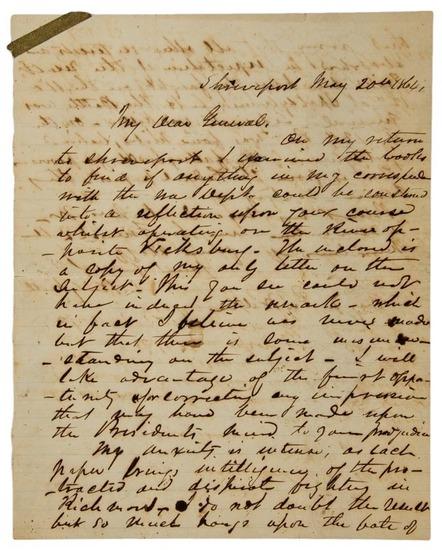 Shreveport May 20th 1864,
My Dear General.
On my return
to Shreveport I examined the books
to find if anything in my correspd
with the War Dept. could be construed
into a reflection upon your course
whilst operating on the River op-
-posite Vicksburg. The inclosed is
a copy of my only letter on the
subject. This you see could not
have induced the remarks - which
in fact I believe was never made
but that there is some misunder-
-standing on the subject - I will
take advantage of the first oppor-
tunity for correcting any impression
that may have been made upon
the Presidents mind to your prejudice
My anxiety is intense, as each
paper brings intelligence of the pro-
tracted and fighting in
Richmond. I do not doubt the result
but so much hangs upon the fate of